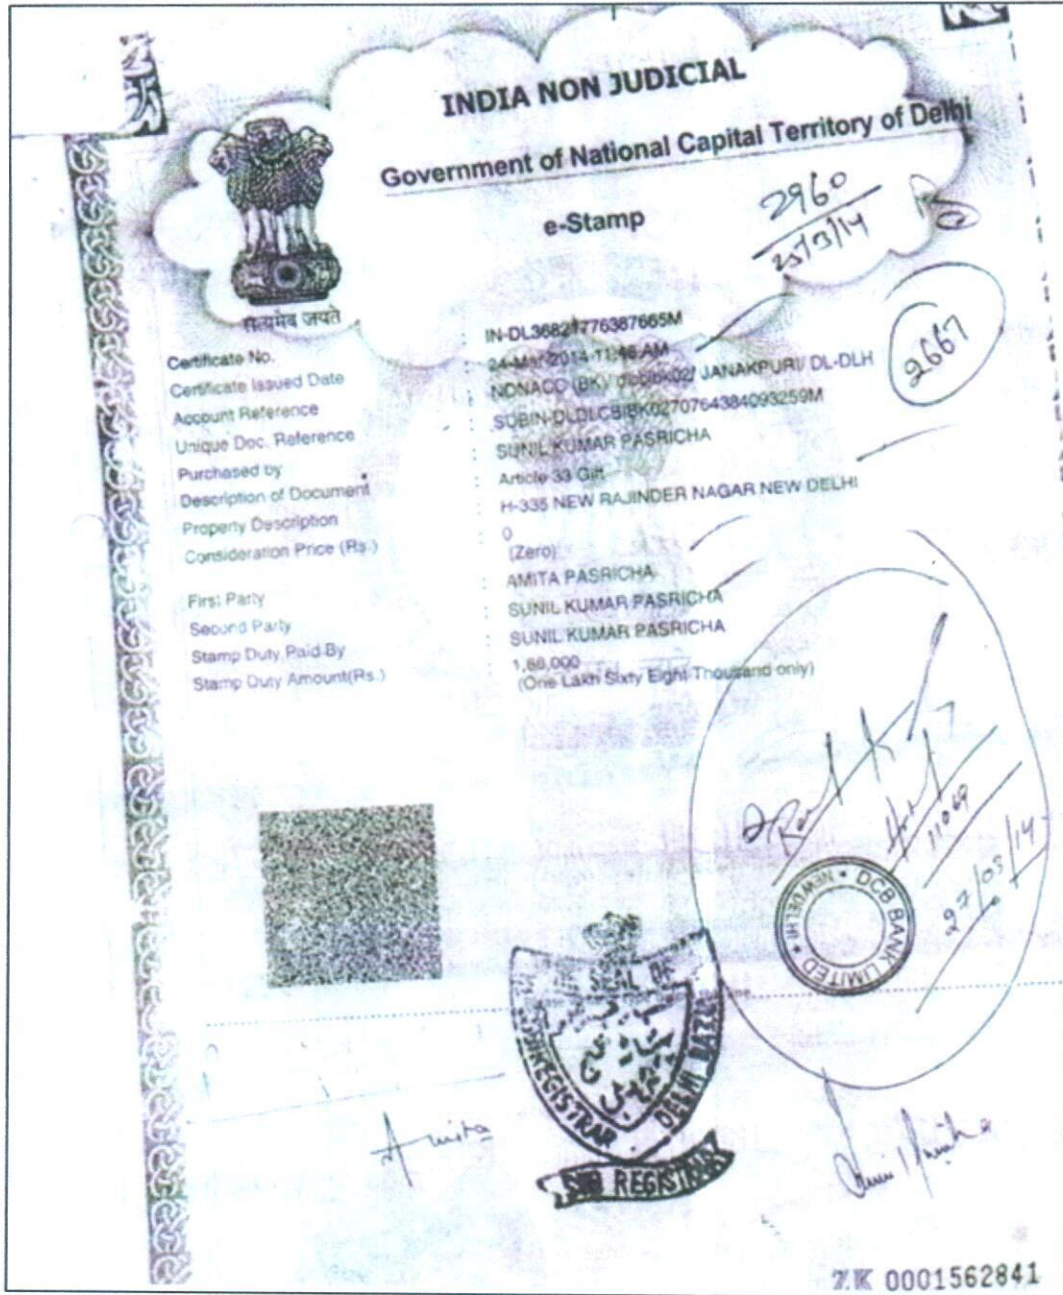 INDIA NON JUDICIAL
Government of National Capital Territory of Delhi
e-Stamp
2960
25/3/14
सत्यमेव जयते
2667
Certificate No. : IN-DL36821776387665M
Certificate Issued Date : 24-Mar-2014 11:46 AM
Account Reference : NONACC (BK)/ dlcbibk02/ JANAKPURI/ DL-DLH
Unique Doc. Reference : SUBIN-DLDLCBIBK0270764384093259M
Purchased by : SUNIL KUMAR PASRICHA
Description of Document : Article 33 Gift
Property Description : H-335 NEW RAJINDER NAGAR NEW DELHI
Consideration Price (Rs.) : 0
(Zero)
First Party : AMITA PASRICHA
Second Party : SUNIL KUMAR PASRICHA
Stamp Duty Paid By : SUNIL KUMAR PASRICHA
Stamp Duty Amount(Rs.) : 1,68,000
(One Lakh Sixty Eight Thousand only)
11069
27/03/14
DCB BANK LIMITED • NEW DELHI •
SEAL OF
SUBREGISTRAR DELHI
SUB REGISTRAR
Amita
ZK 0001562841